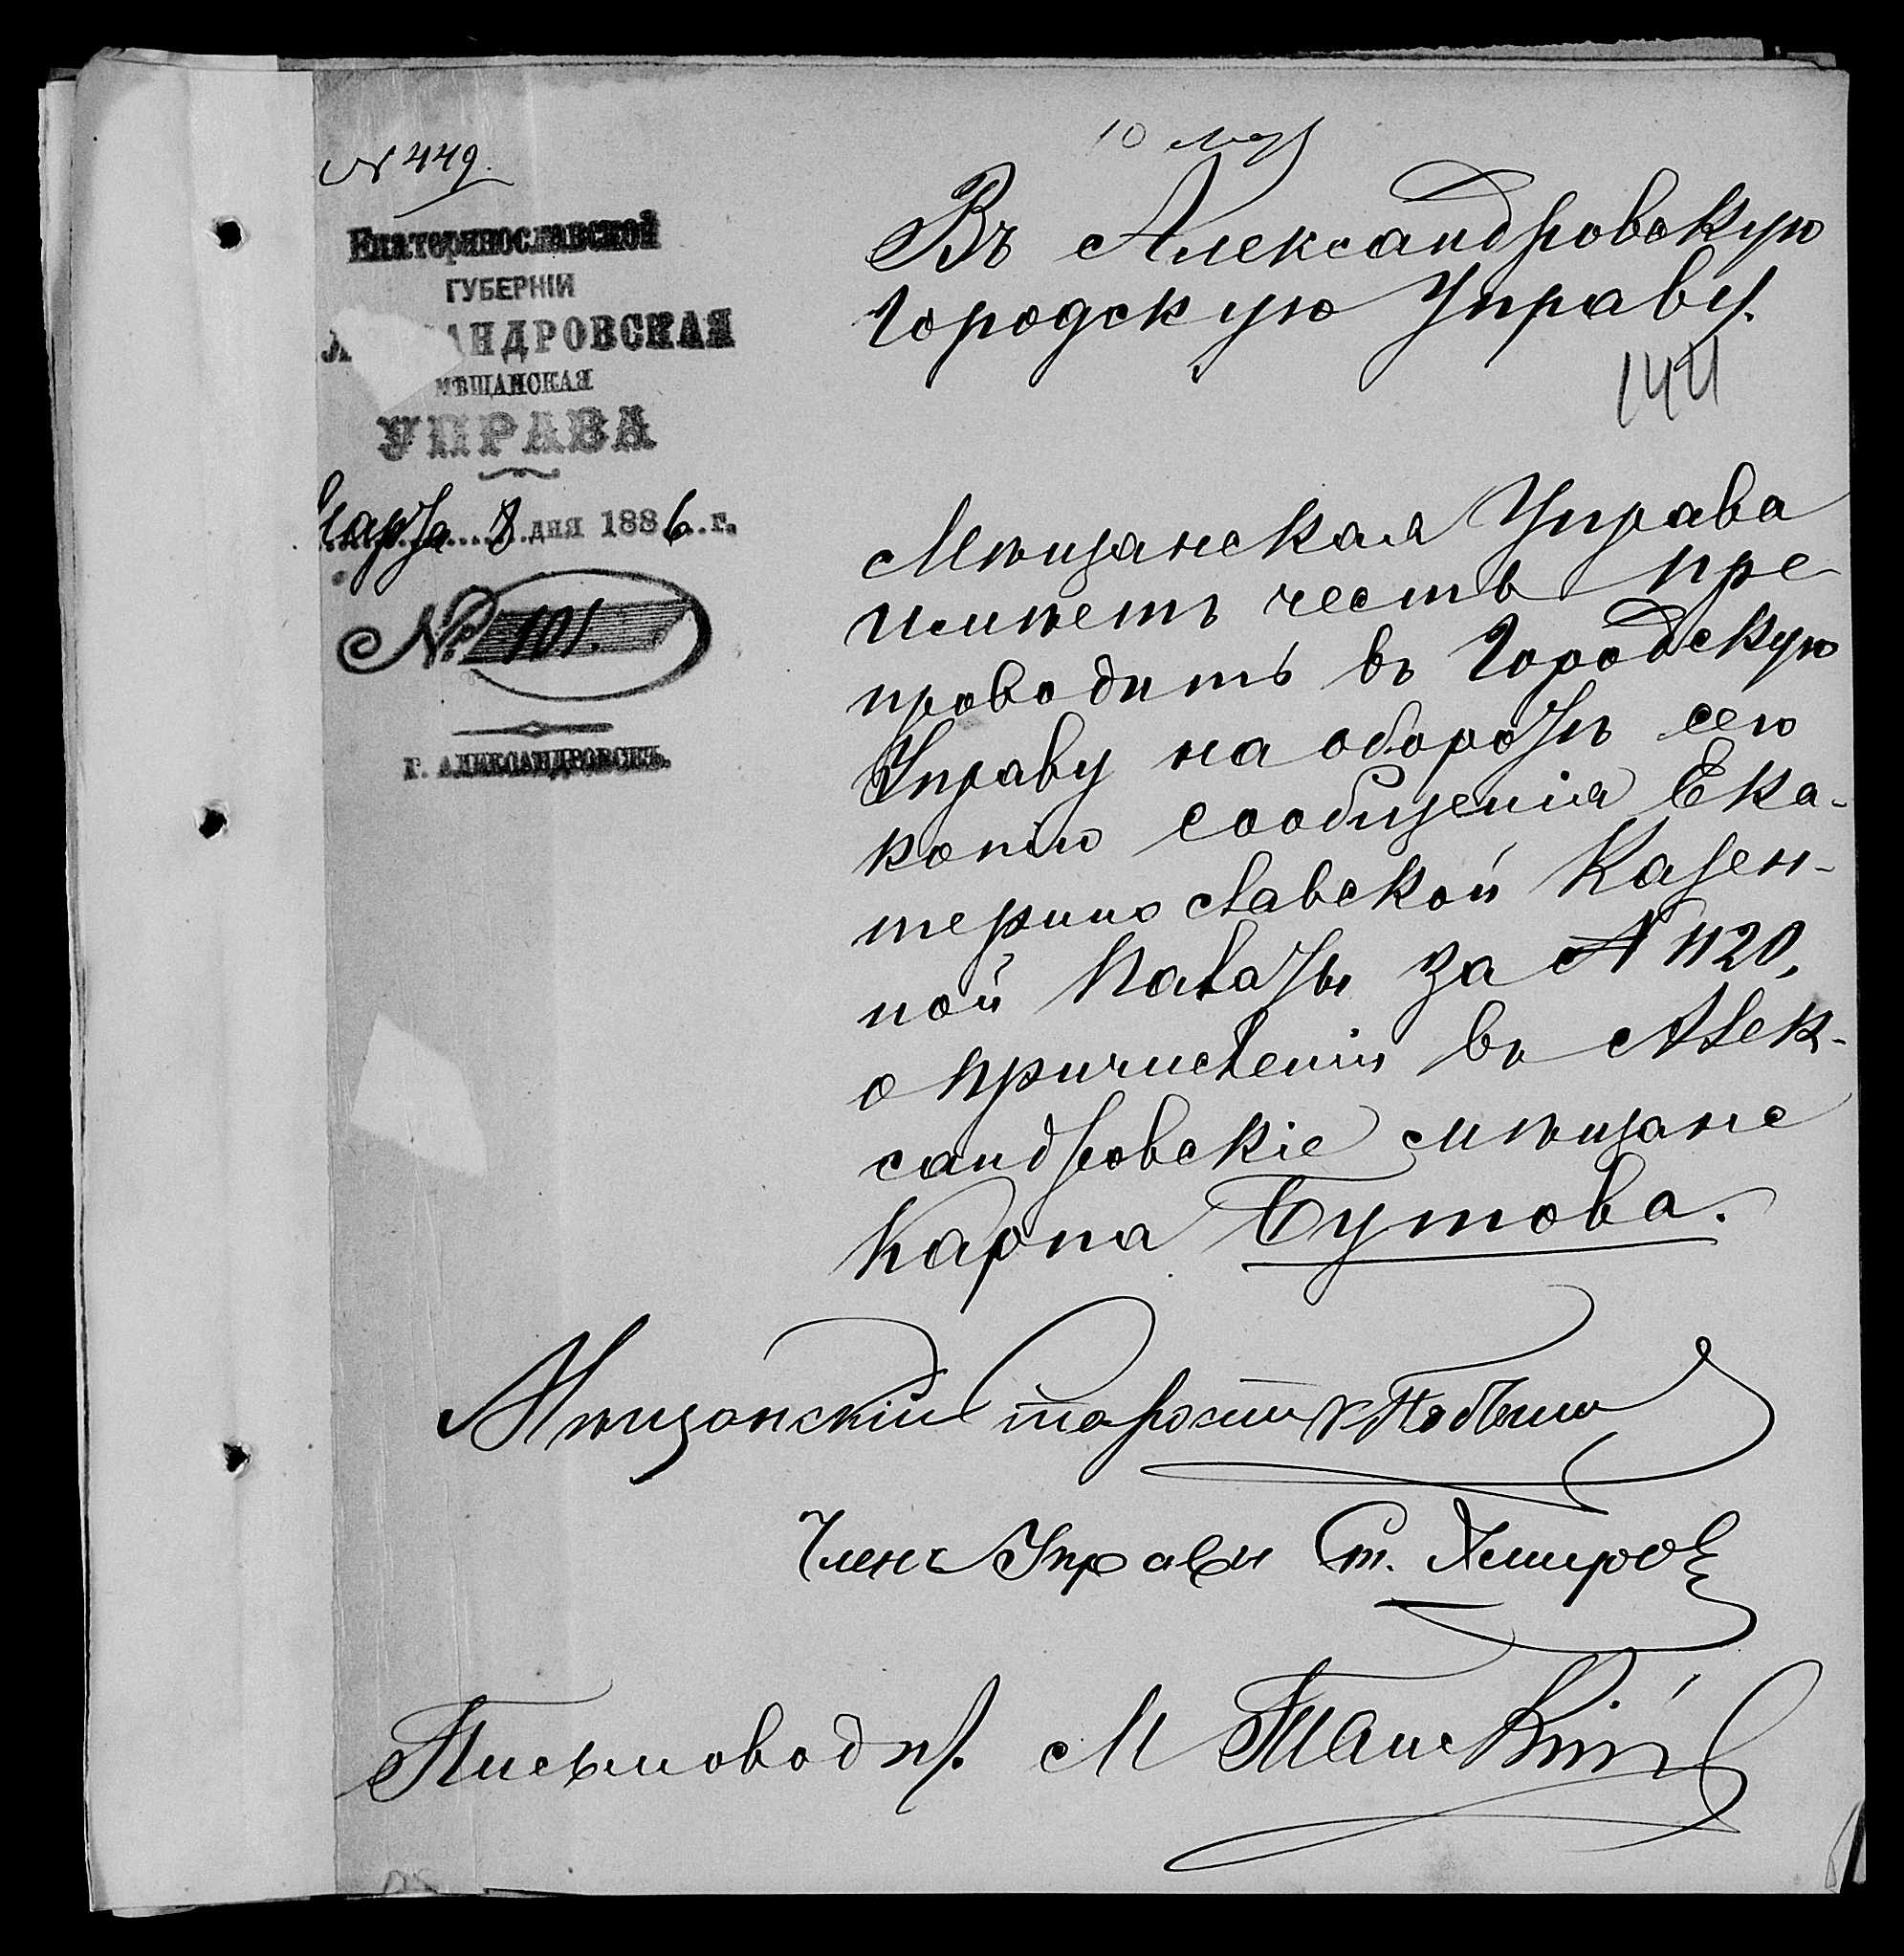 № 449.
10 мар
Екатеринославской
ГУБЕРНІИ
АНДРОВСКАЯ
МѢЩАНСКАЯ
УПРАВА
Марта 8 дня 1886 г.
№ 101.
Г. АЛЕКСАНДРОВСКЪ.
Въ Александровскую
Городскую Управу.
144
Мѣщанская Управа
имѣетъ честь пре
проводить въ Городскую
Управу на оборотѣ сего
копію сообщенія Ека-
теринославской Казен-
ной Палаты за № 1120,
о причисленіи въ Алек-
сандровскіе мѣщане
Карпа Бутова.
Мѣщанскій Староста
Членъ Управы Ст.
Письмоводит. М